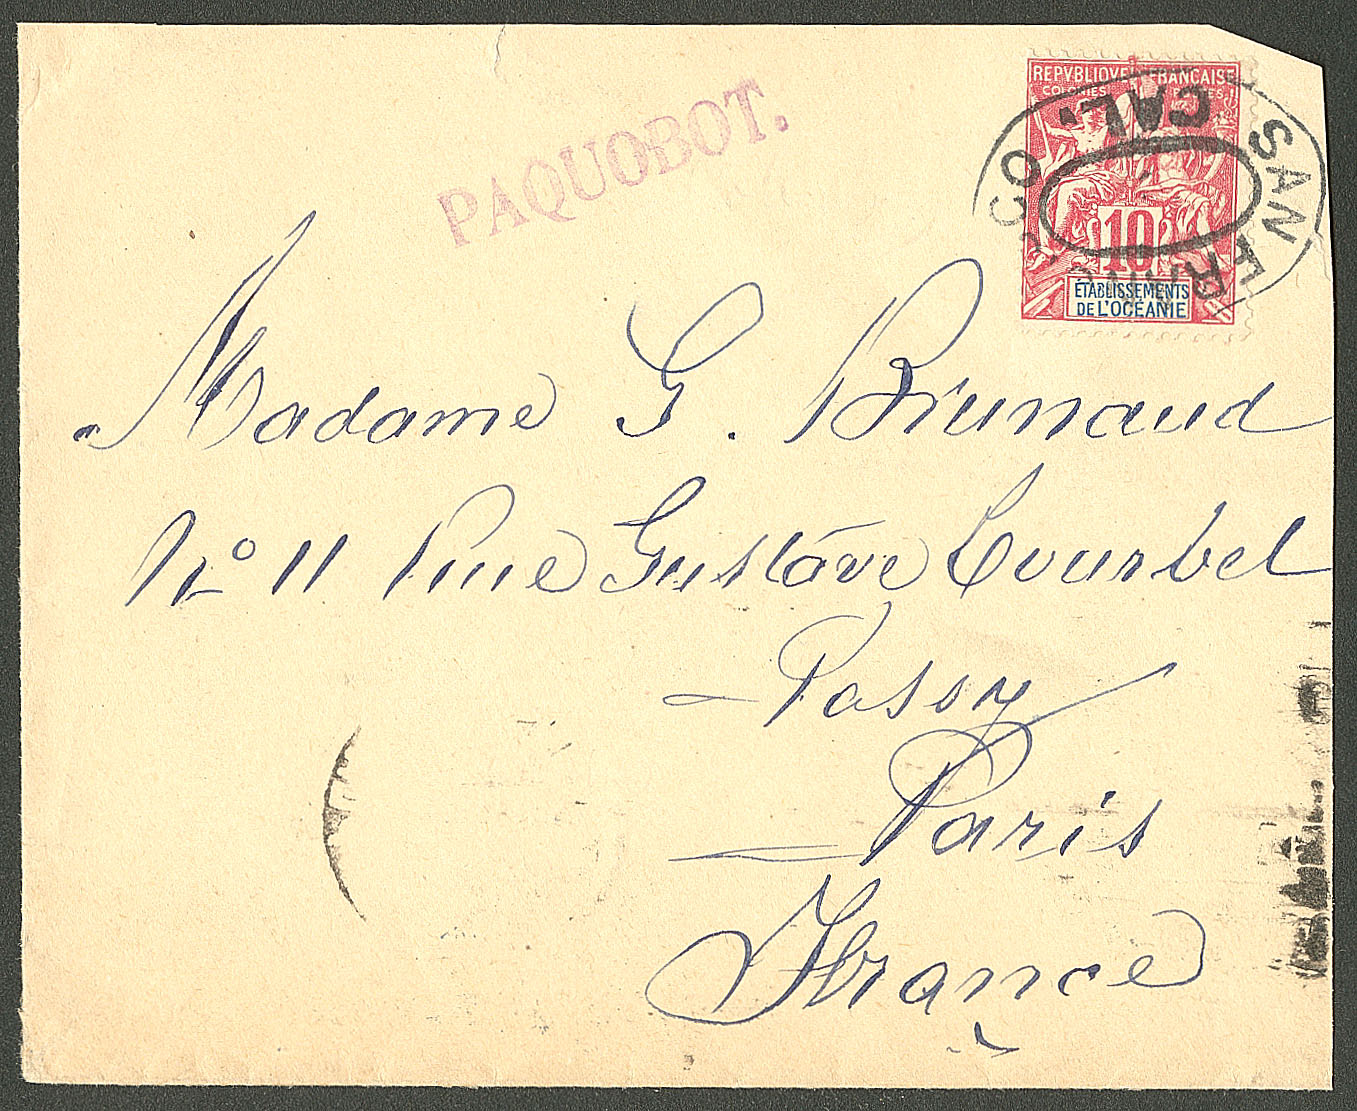 PAQUOBOT.
REPVBLIQVE FRANCAISE
COLONIES
10
ÉTABLISSEMENTS
DE L'OCÉANIE
SAN FRANCISCO
CAL.
Madame G. Brunaud
No 11 Rue Gustave Courbet
Passy
Paris
France